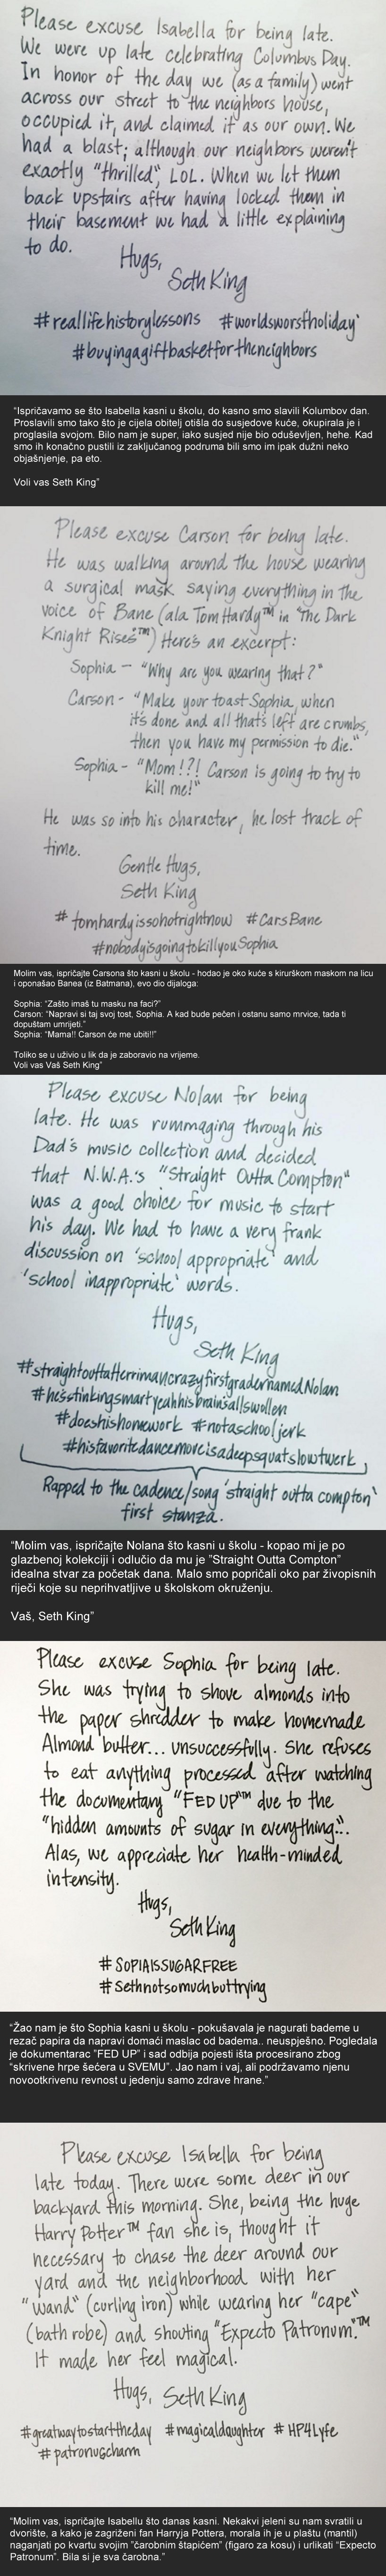 Please excuse Isabella for being late.
We were up late celebrating Columbus Day.
In honor of the day we (as a family) went
across our street to the neighbors house,
occupied it, and claimed it as our own. We
had a blast; although our neighbors weren't
exactly "thrilled", LOL. When we let them
back upstairs after having locked them in
their basement we had a little explaining
to do.
Hugs,
Seth King
#reallifehistorylessons #worldsworstholiday
#buyingagiftbasketfortheneighbors
"Ispričavamo se što Isabella kasni u školu, do kasno smo slavili Kolumbov dan.
Proslavili smo tako što je cijela obitelj otišla do susjedove kuće, okupirala je i
proglasila svojom. Bilo nam je super, iako susjed nije bio oduševljen, hehe. Kad
smo ih konačno pustili iz zaključanog podruma bili smo im ipak dužni neko
objašnjenje, pa eto.
Voli vas Seth King"
Please excuse Carson for being late.
He was walking around the house wearing
a surgical mask saying everything in the
voice of Bane (ala Tom Hardy™ in "The Dark
Knight Rises"™) Here's an excerpt:
Sophia – "Why are you wearing that?"
Carson - "Make your toast Sophia, when
it's done and all that's left are crumbs,
then you have my permission to die."
Sophia - "Mom!?! Carson is going to try to
kill me!"
He was so into his character, he lost track of
time.
Gentle Hugs,
Seth King
# tomhardyissohotrightnow #CarsBane
#nobodyisgoingtokillyouSophia
Molim vas, ispričajte Carsona što kasni u školu - hodao je oko kuće s kirurškom maskom na licu
i oponašao Banea (iz Batmana), evo dio dijaloga:
Sophia: "Zašto imaš tu masku na faci?"
Carson: "Napravi si taj svoj tost, Sophia. A kad bude pečen i ostanu samo mrvice, tada ti
dopuštam umrijeti."
Sophia: "Mama!! Carson će me ubiti!!"
Toliko se u uživio u lik da je zaboravio na vrijeme.
Voli vas Vaš Seth King"
Please excuse Nolan for being
late. He was rummaging through his
Dad's music collection and decided
that N.W.A.'s "Straight Outta Compton"
was a good choice for music to start
his day. We had to have a very frank
discussion on 'school appropriate' and
'school inappropriate' words.
Hugs,
Seth King
#straightouttaHerrimancrazyfirstgradernamedNolan
#hesstinkingsmartyeahhisbrainsallswollen
#doeshishomework #notaschooljerk
#hisfavoritedancemoveisadeepsquatslowtwerk
Rapped to the cadence/song 'straight outta compton'
first stanza.
"Molim vas, ispričajte Nolana što kasni u školu - kopao mi je po
glazbenoj kolekciji i odlučio da mu je "Straight Outta Compton"
idealna stvar za početak dana. Malo smo popričali oko par živopisnih
riječi koje su neprihvatljive u školskom okruženju.
Vaš, Seth King"
Please excuse Sophia for being late.
She was trying to shove almonds into
the paper shredder to make homemade
Almond butter... unsuccessfully. She refuses
to eat anything processed after watching
the documentary "FED UP"™ due to the
"hidden amounts of sugar in everything"...
Alas, we appreciate her health-minded
intensity.
Hugs,
Seth King
#SOPIAISSUGARFREE
#Sethnotsomuchbuttrying
"Žao nam je što Sophia kasni u školu - pokušavala je nagurati bademe u
rezač papira da napravi domaći maslac od badema.. neuspješno. Pogledala
je dokumentarac "FED UP" i sad odbija pojesti išta procesirano zbog
"skrivene hrpe šećera u SVEMU". Jao nam i vaj, ali podržavamo njenu
novootkrivenu revnost u jedenju samo zdrave hrane."
Please excuse Isabella for being
late today. There were some deer in our
backyard this morning. She, being the huge
Harry Potter™ fan she is, thought it
necessary to chase the deer around our
yard and the neighborhood with her
"wand" (curling iron) while wearing her "cape"
(bath robe) and shouting "Expecto Patronum."™
It made her feel magical.
Hugs, Seth King
#greatwaytostarttheday #magicaldaughter #HP4Lyfe
#patronuscharm
"Molim vas, ispričajte Isabellu što danas kasni. Nekakvi jeleni su nam svratili u
dvorište, a kako je zagriženi fan Harryja Pottera, morala ih je u plaštu (mantil)
naganjati po kvartu svojim "čarobnim štapićem" (figaro za kosu) i urlikati "Expecto
Patronum". Bila si je sva čarobna."